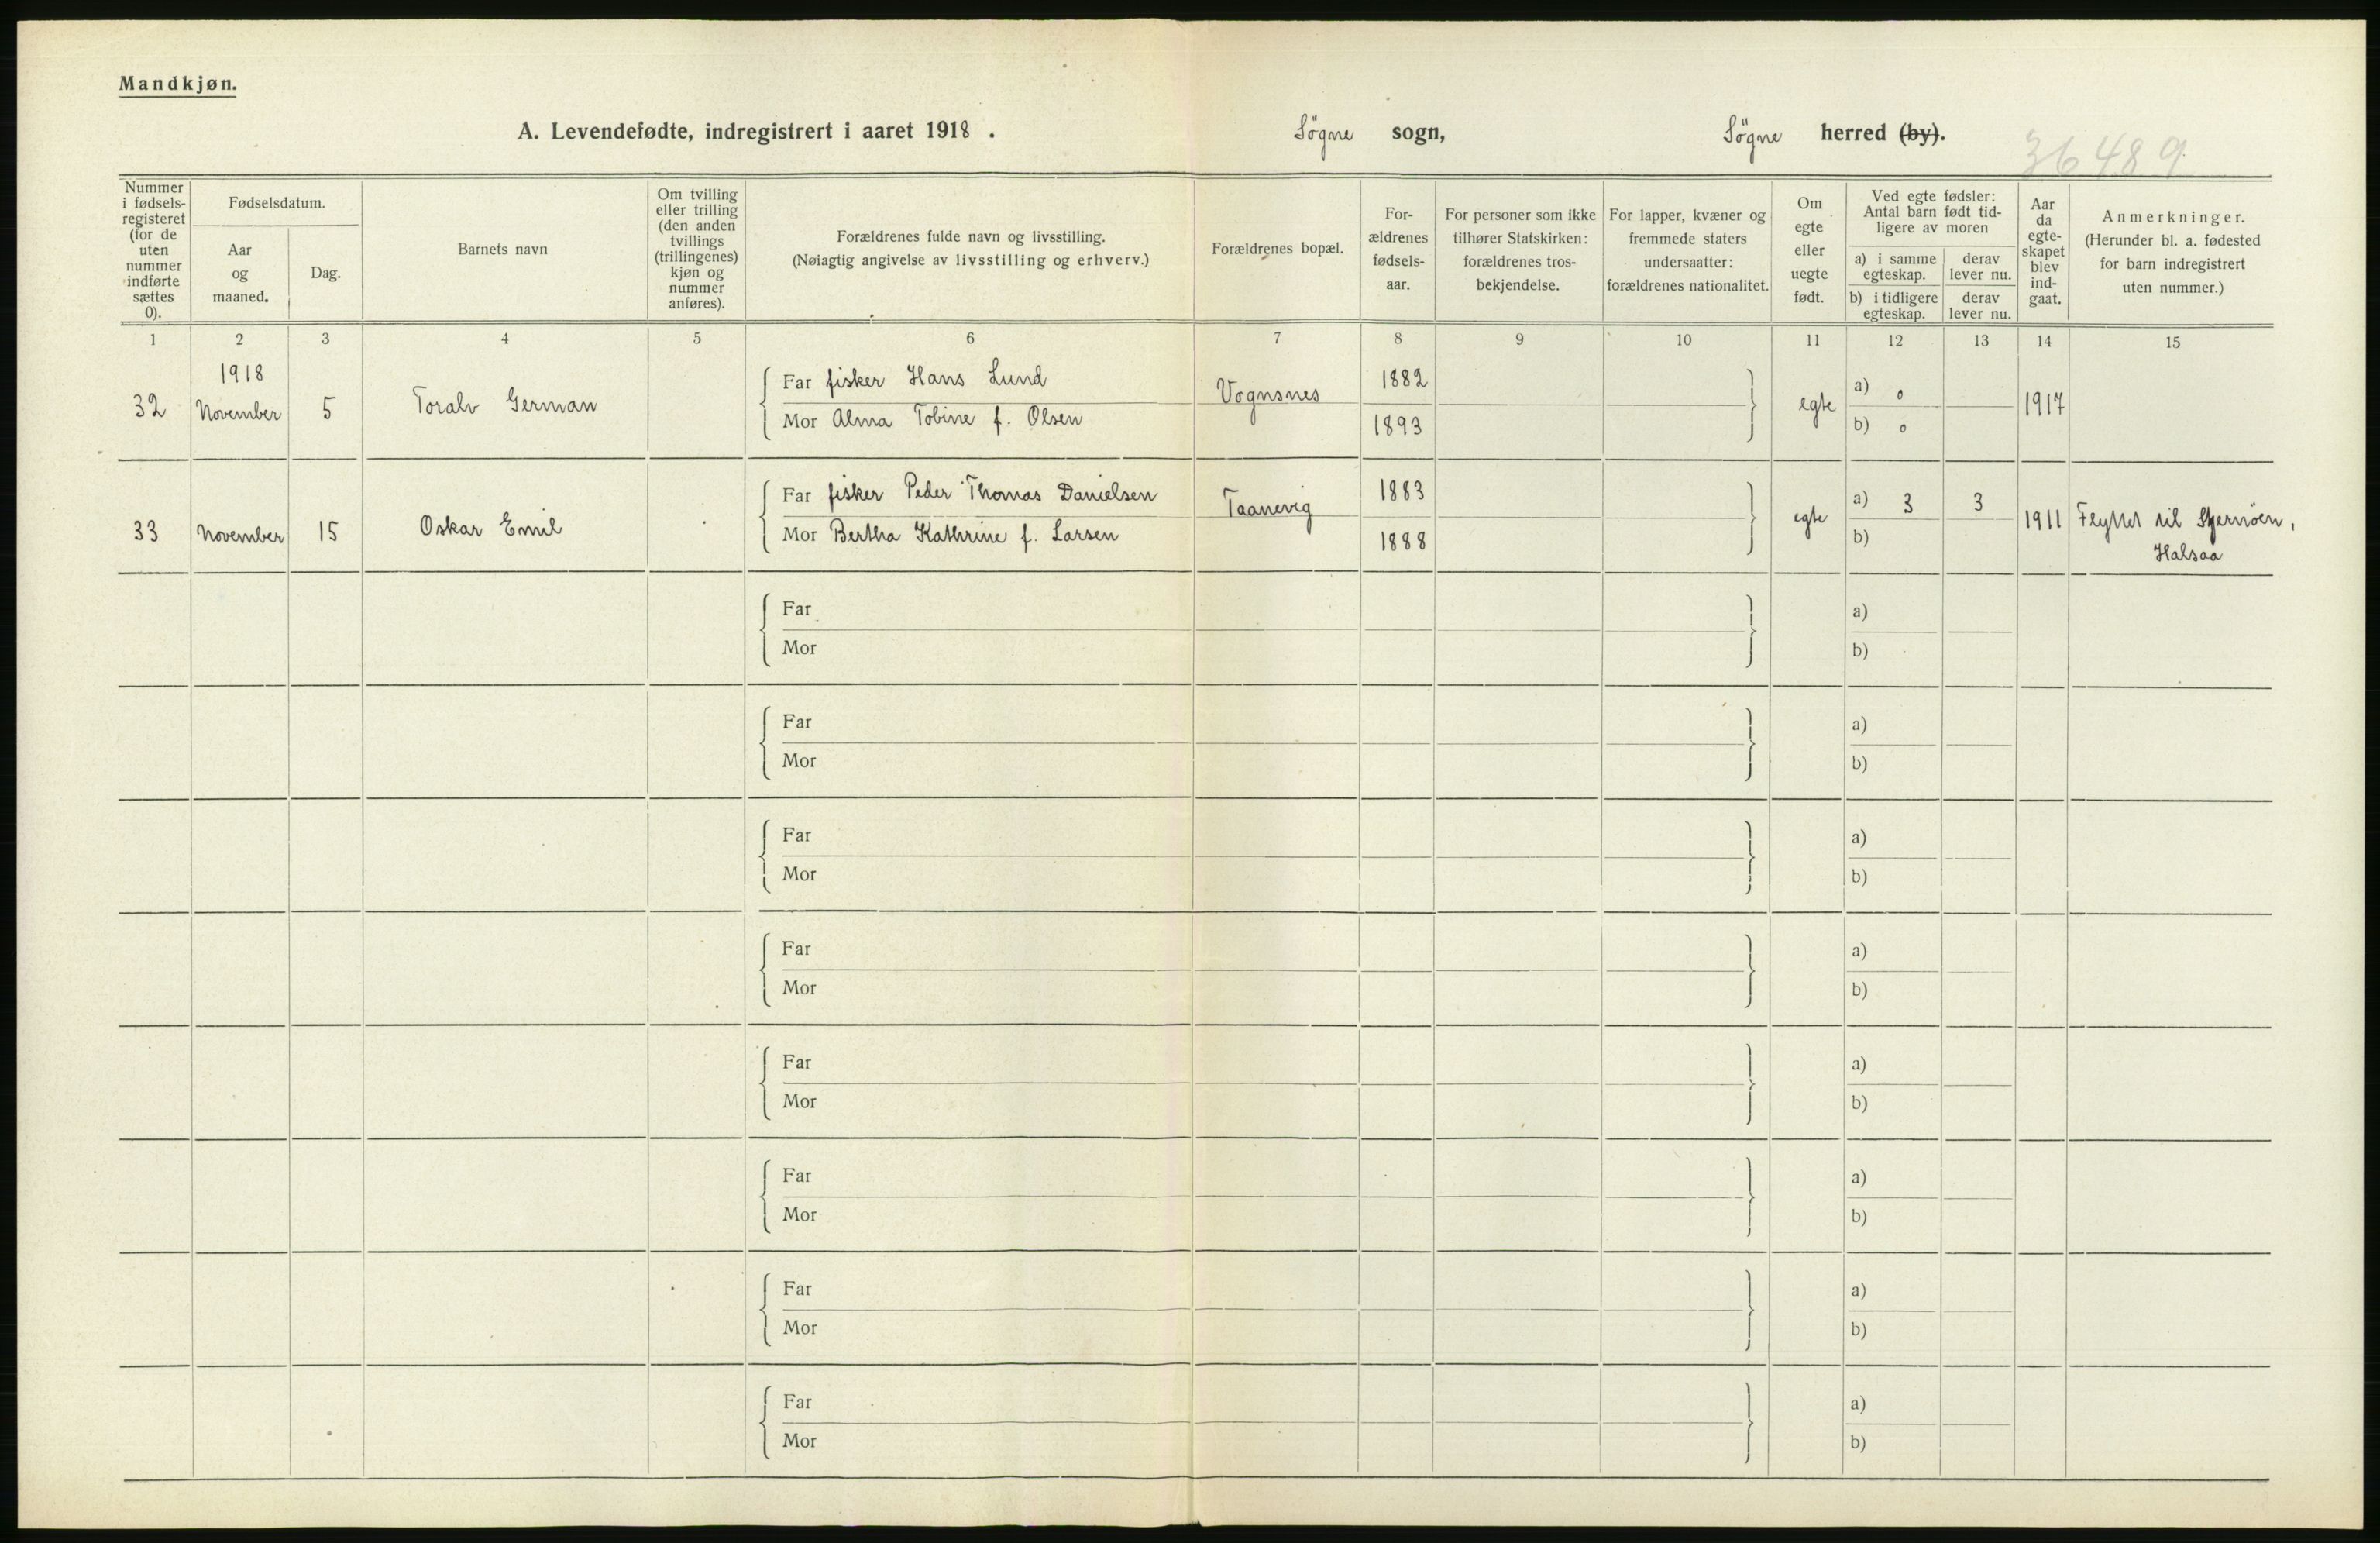 Mandkjøn.
A. Levendefødte, indregistrert i aaret 1918. Søgne sogn, Søgne herred (by).
36489
Nummer i fødsels-registeret (for de uten nummer indførte sættes 0).
Fødselsdatum.
Aar og maaned.
Dag.
Barnets navn
Om tvilling eller trilling (den anden tvillings (trillingenes) kjøn og nummer anføres).
Forældrenes fulde navn og livsstilling.
(Nøiagtig angivelse av livsstilling og erhverv.)
Forældrenes bopæl.
For-ældrenes fødsels-aar.
For personer som ikke tilhører Statskirken: forældrenes tros-bekjendelse.
For lapper, kvæner og fremmede staters undersaatter: forældrenes nationalitet.
Om egte eller uegte født.
Ved egte fødsler: Antal barn født tid-ligere av moren
a) i samme egteskap.
derav lever nu.
b) i tidligere egteskap.
derav lever nu.
Aar da egte-skapet blev ind-gaat.
Anmerkninger.
(Herunder bl. a. fødested for barn indregistrert uten nummer.)
1 2 3 4 5 6 7 8 9 10 11 12 13 14 15
1918
32 November 5 Toralv German
Far fisker Hans Lund
Mor Alma Tobine f. Olsen
Vognsnes
1882
1893
egte
a) 0
b) 0
1917
33 November 15 Oskar Emil
Far fisker Peder Thomas Danielsen
Mor Bertha Kathrine f. Larsen
Taanevig
1883
1888
egte
a) 3 3
b)
1911
Flyttet til Skjernøen,
Halsaa
Far a)
Mor b)
Far a)
Mor b)
Far a)
Mor b)
Far a)
Mor b)
Far a)
Mor b)
Far a)
Mor b)
Far a)
Mor b)
Far a)
Mor b)